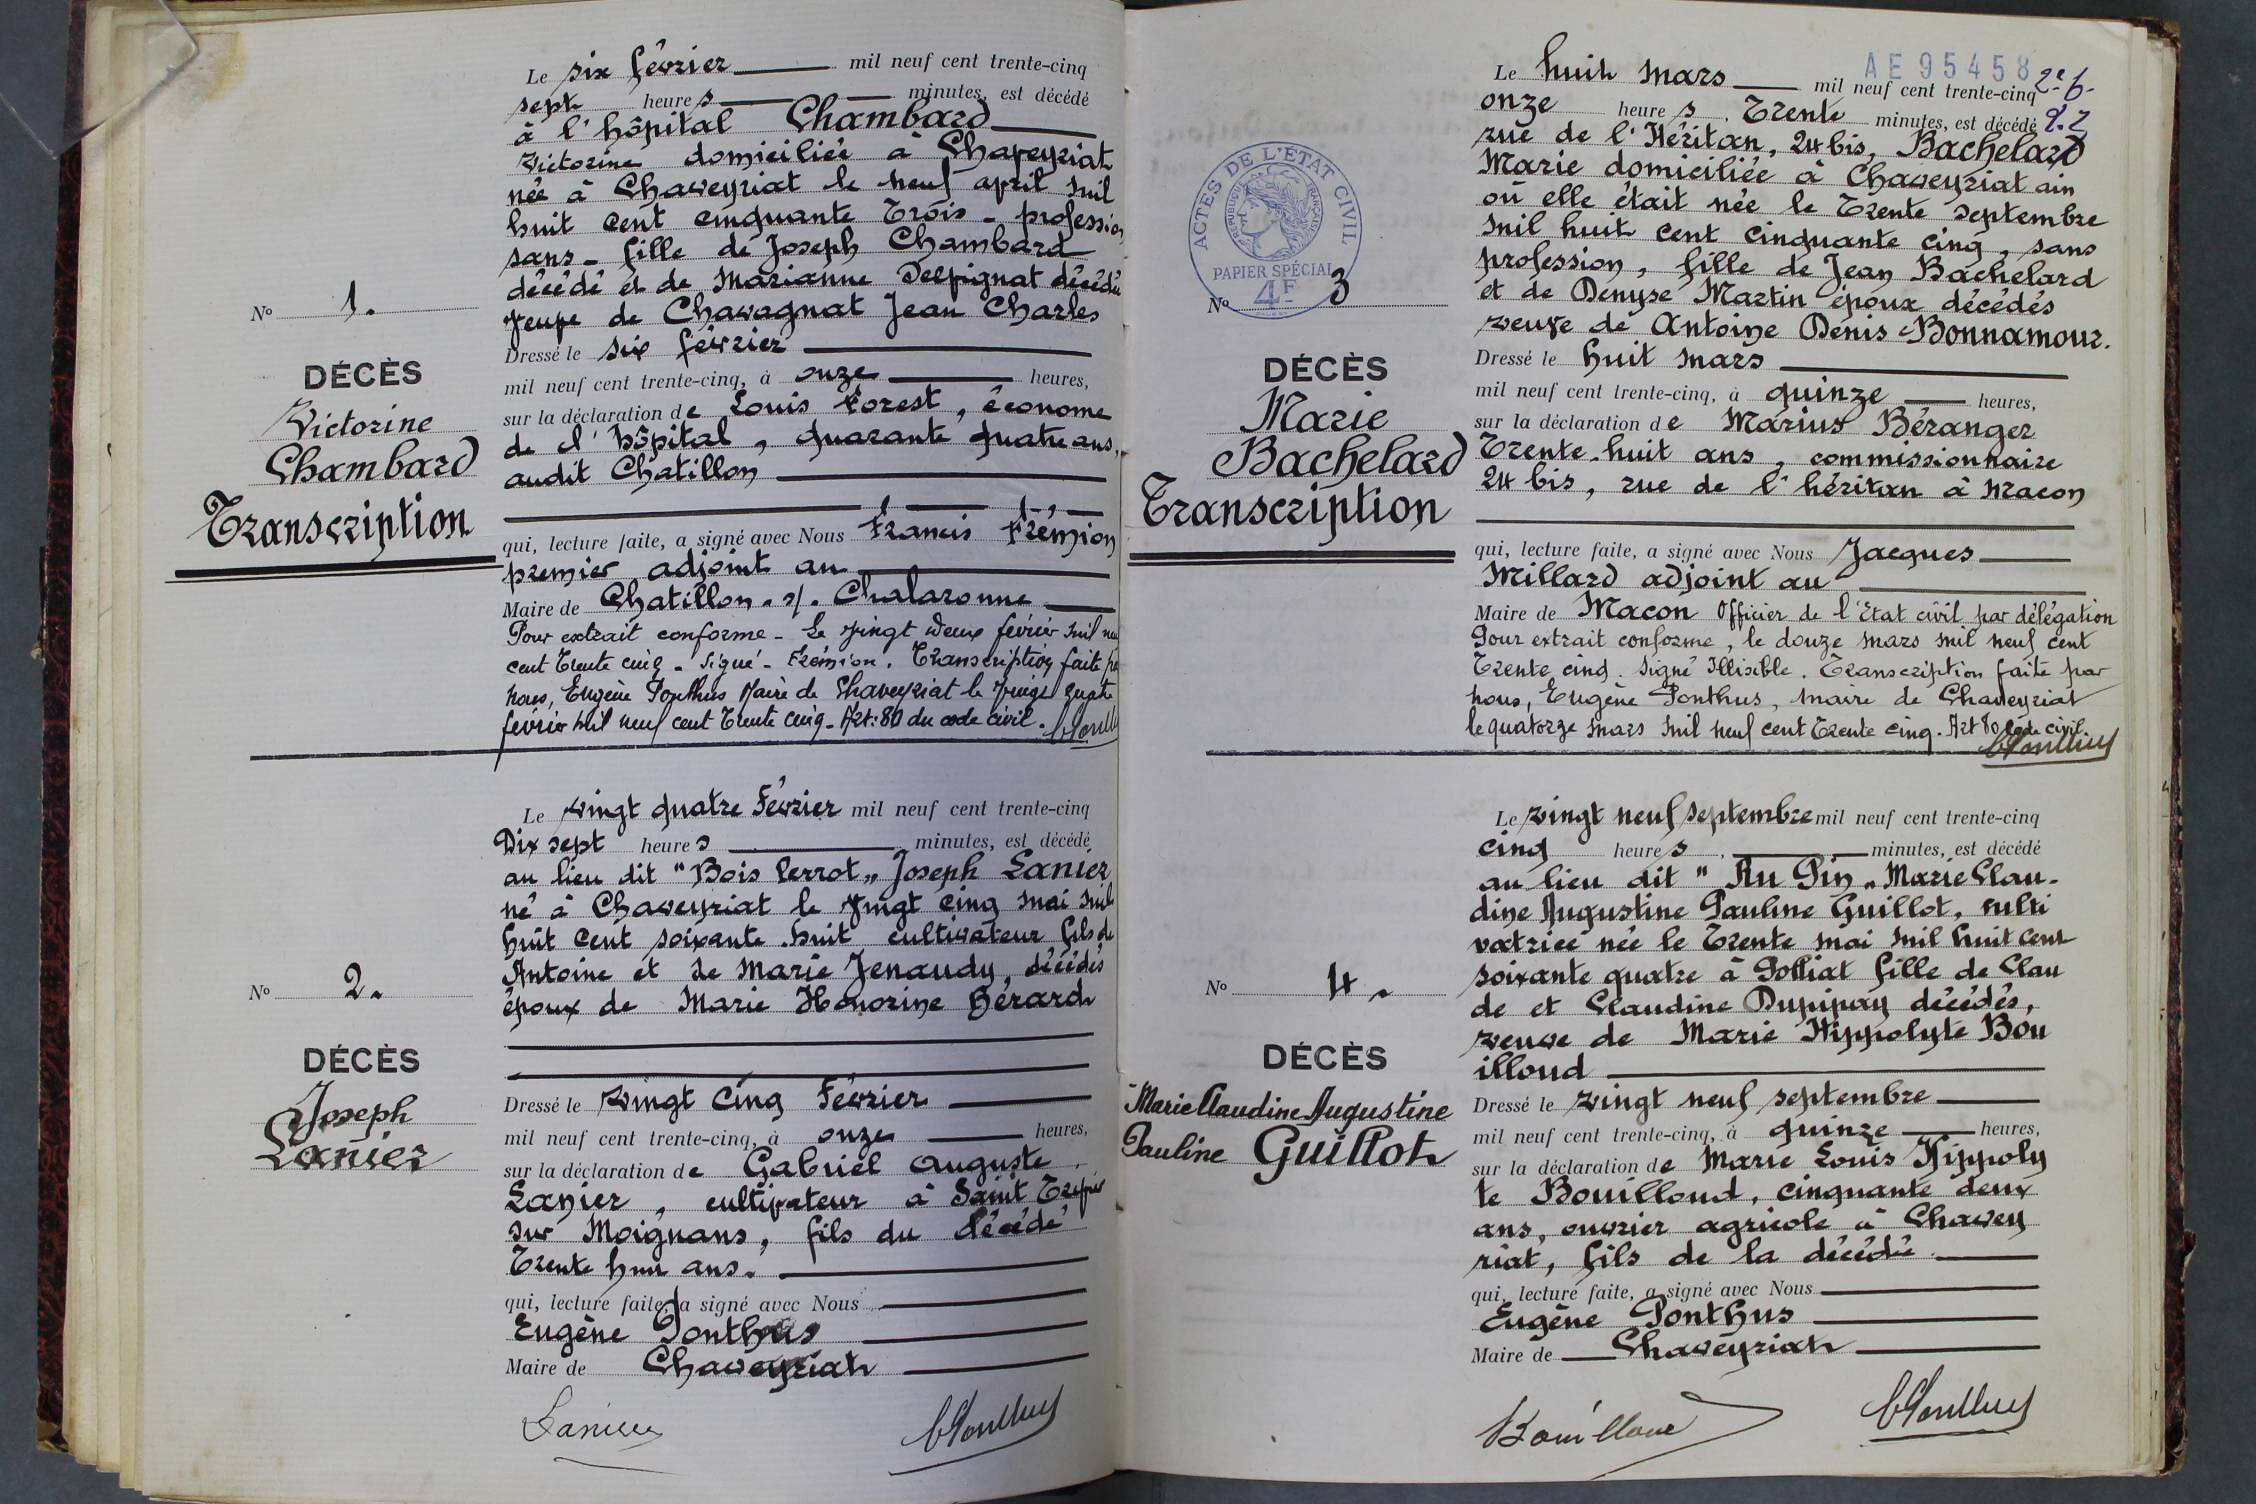 Le six février mil neuf cent trente-cinq
sept heures minutes, est décédé
à l'hôpital Chambard
Victorine domiciliée à Chaveyriat
née à Chaveyriat le neuf april mil
huit cent cinquante trois - profession
sans - fille de Joseph Chambard
décédé et de Marianne Delpignat décédée
veuve de Chavagnat Jean Charles
Dressé le six février
mil neuf cent trente-cinq, à onze heures,
sur la déclaration de Louis Forest, économe
de l'hôpital, quarante quatre ans,
audit Chatillon
qui, lecture faite, a signé avec Nous Francis Frémion
premier adjoint au
Maire de Chatillon. s/. Chalaronne
Pour extrait conforme - Le vingt deux février mil neuf
cent trente cinq - Signé - Frémion. Transcription faite par
nous, Eugène Ponthus Maire de Chaveyriat le vingt quatre
février mil neuf cent trente cinq - Art: 80 du code civil.
No 1.
DÉCÈS
Victorine
Chambard
Transcription
Le vingt quatre Février mil neuf cent trente-cinq
Dix sept heures minutes, est décédé
au lieu dit "Bois Perrot" Joseph Lanier
né à Chaveyriat le vingt cinq mai mil
huit cent soixante huit cultivateur fils de
Antoine et de Marie Jenaudy, décédés
époux de Marie Honorine Gérard
Dressé le vingt cinq Février
mil neuf cent trente-cinq, à onze heures,
sur la déclaration de Gabriel Auguste
Lanier, cultivateur à Saint Trivier
sur Moignans, fils du décédé
Trente huit ans.
qui, lecture faite, a signé avec Nous
Eugène Ponthus
Maire de Chaveyriat
Lanier
Ponthus
No 2.
DÉCÈS
Joseph
Lanier
AE 95458
2e f.
Le huit mars mil neuf cent trente-cinq
onze heures Trente minutes, est décédé
rue de l'Héritan, 24 bis, Bachelard
Marie domiciliée à Chaveyriat ain
où elle était née le Trente septembre
mil huit cent cinquante cinq, sans
profession, fille de Jean Bachelard
et de Denyse Martin époux décédés
veuve de Antoine Denis Bonnamour.
Dressé le huit mars
mil neuf cent trente-cinq, à quinze heures,
sur la déclaration de Marius Béranger
Trente-huit ans, commissionnaire
24 bis, rue de l'héritan à Macon
qui, lecture faite, a signé avec Nous Jacques
Millard adjoint au
Maire de Macon Officier de l'Etat civil par délégation
Pour extrait conforme, le douze mars mil neuf cent
Trente cinq. Signé Illisible. Transcription faite par
nous, Eugène Ponthus, maire de Chaveyriat
le quatorze mars mil neuf cent Trente cinq. Art 80 code civil.
Ponthus
ACTES DE L'ÉTAT CIVIL
RÉPUBLIQUE FRANÇAISE
PAPIER SPÉCIAL
4F
No 3
DÉCÈS
Marie
Bachelard
Transcription
Le vingt neuf septembre mil neuf cent trente-cinq
cinq heures, minutes, est décédé
au lieu dit "Au Pin" Marie Clau-
dine Augustine Pauline Guillot, culti
vatrice née le Trente mai mil huit cent
soixante quatre à Polliat fille de Clau
de et Claudine Dupipay décédés,
veuve de Marie Hippolyte Bou
illoud
Dressé le vingt neuf septembre
mil neuf cent trente-cinq, à quinze heures,
sur la déclaration de Marie Louis Hippoly
te Bouilloud, cinquante deux
ans, ouvrier agricole à Chavey
riat, fils de la décédée
qui, lecture faite, a signé avec Nous
Eugène Ponthus
Maire de Chaveyriat
Bouilloud
Ponthus
No 4.
DÉCÈS
Marie Claudine Augustine
Pauline Guillot